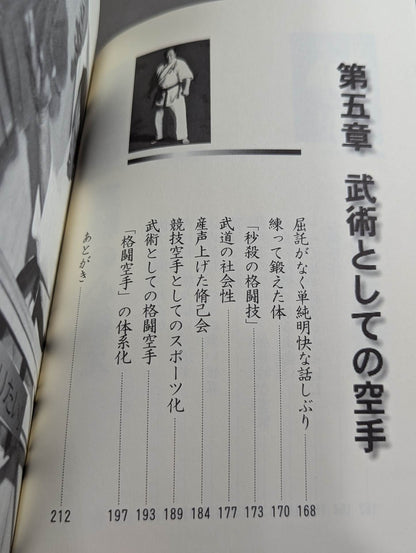 第五章 武術としての空手
屈託がなく単純明快な話しぶり 168
練って鍛えた体 170
「秒殺の格闘技」 173
武道の社会性 177
産声上げた脩己会 184
競技空手としてのスポーツ化 189
武術としての格闘空手 193
「格闘空手」の体系化 197
あとがき 212